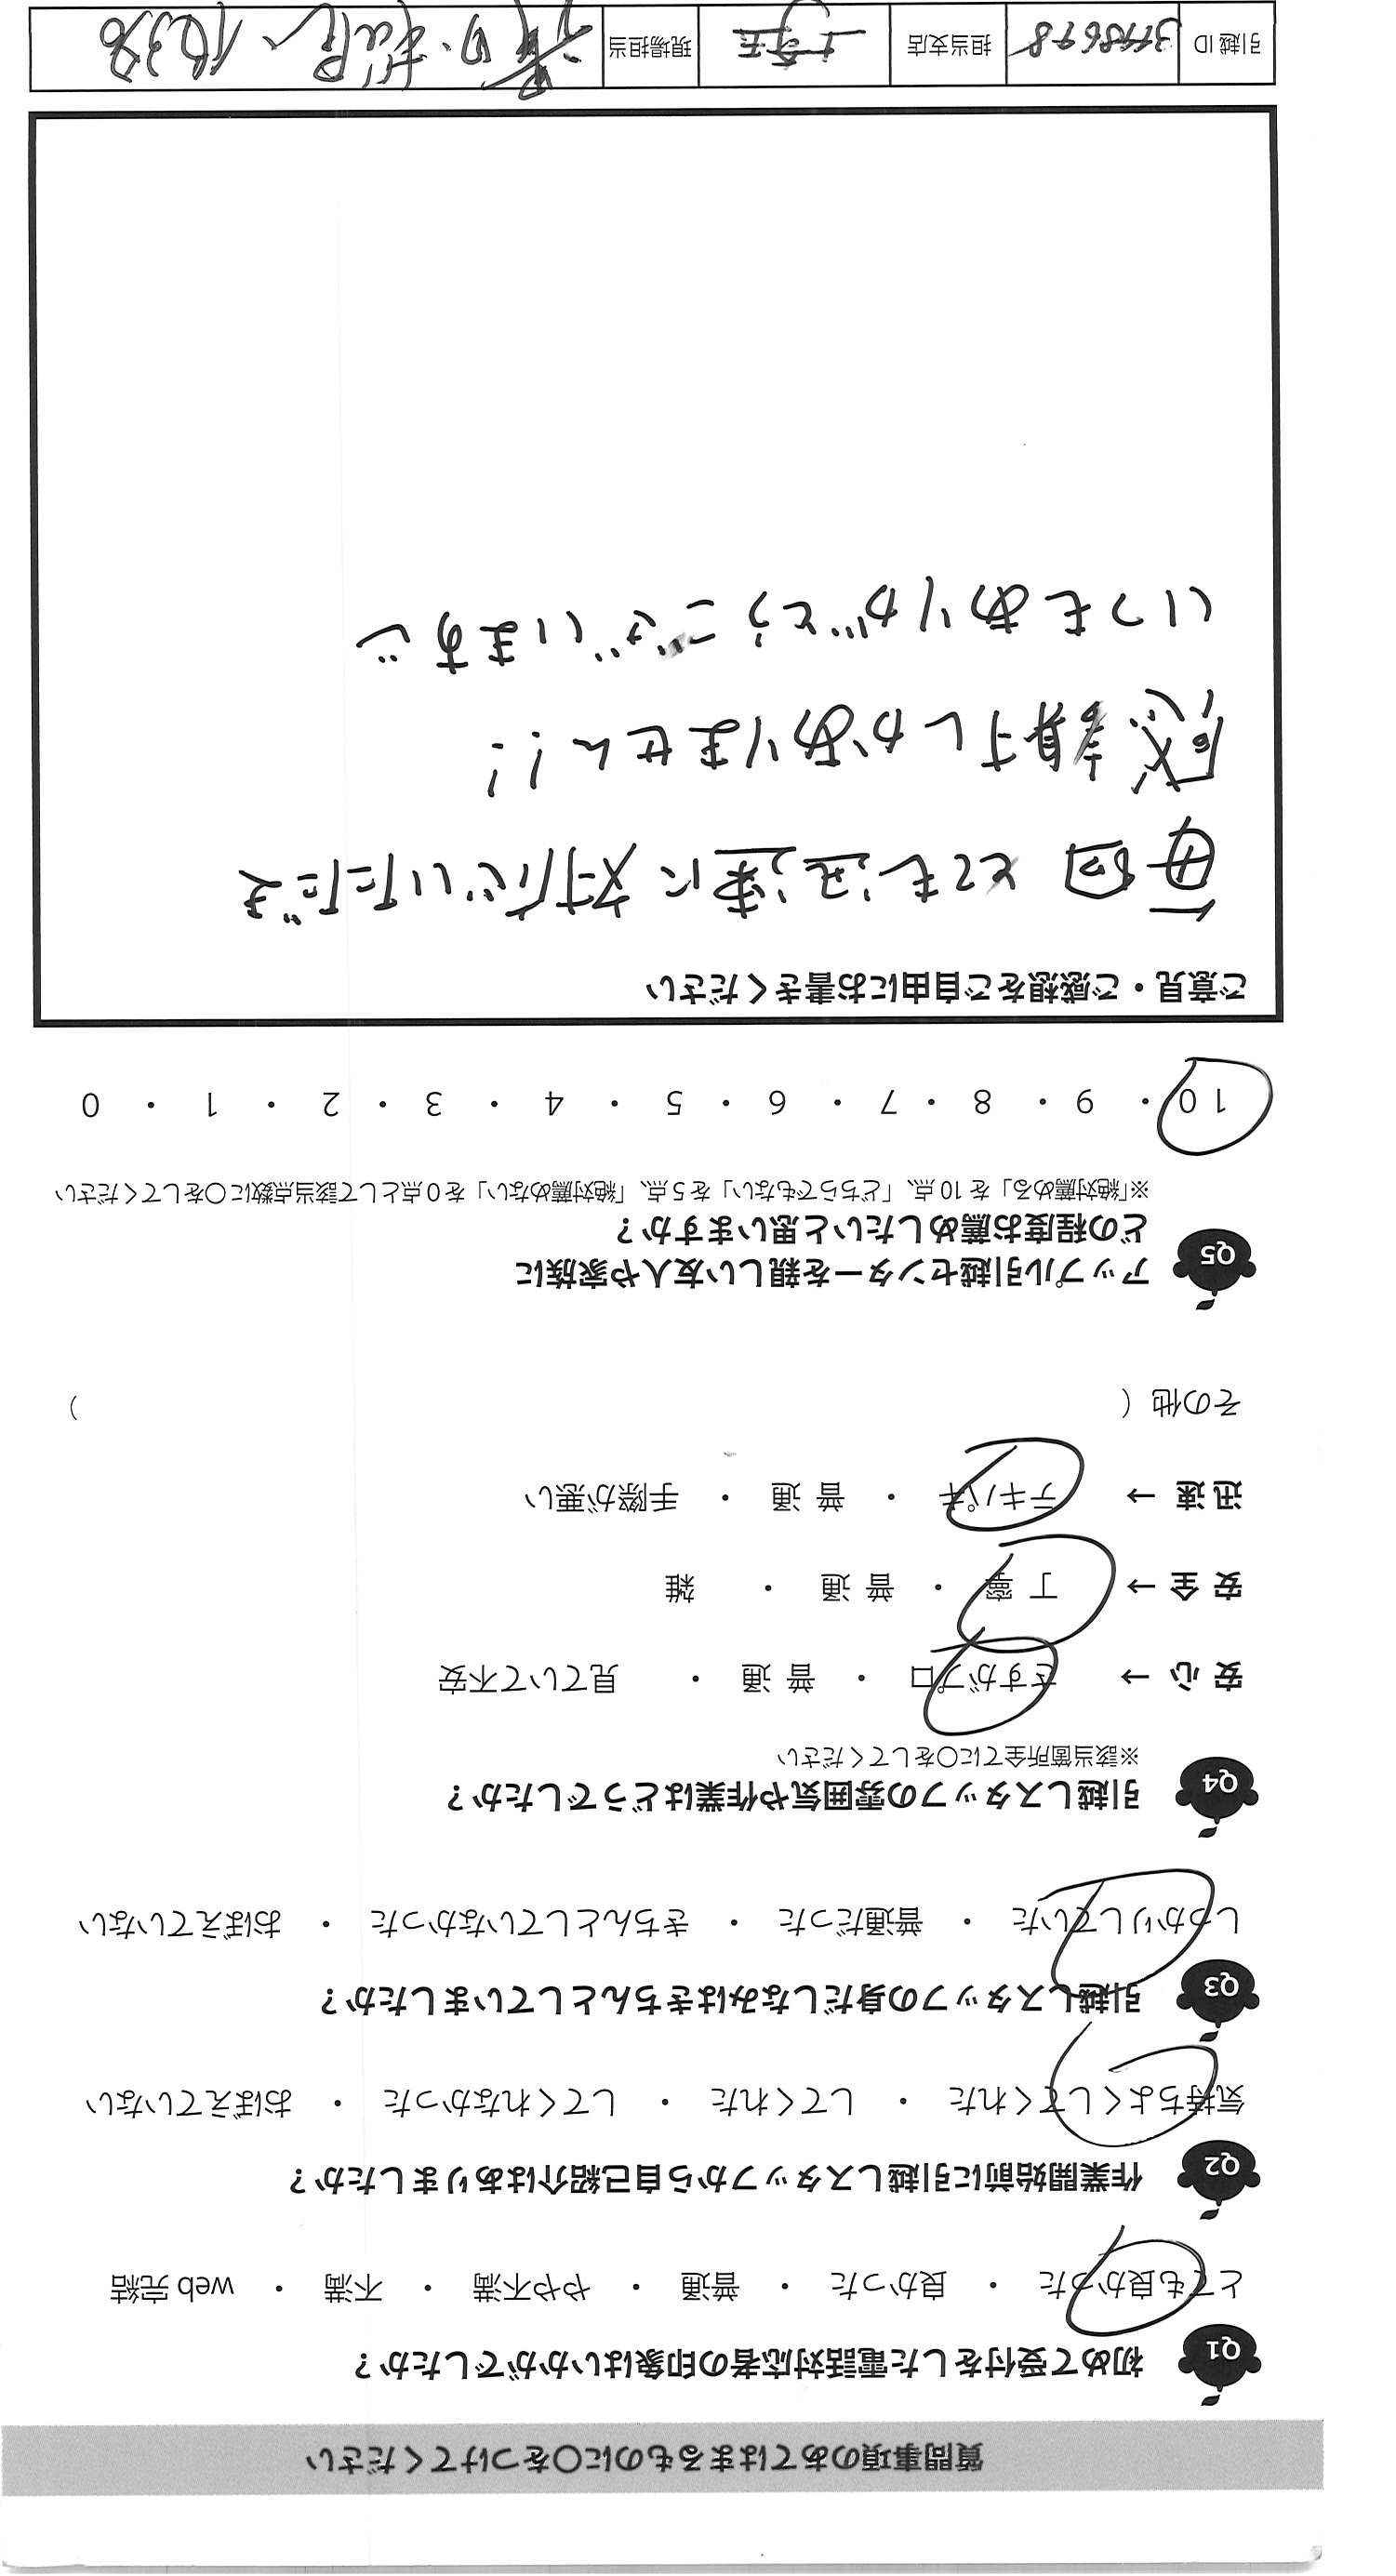 質問事項のあてはまるものに〇をつけてください
Q1 初めて受付をした電話対応者の印象はいかがでしたか？
とても良かった ・ 良かった ・ 普通 ・ やや不満 ・ 不満 ・ web 完結
Q2 作業開始前に引越しスタッフから自己紹介はありましたか？
気持ちよくしてくれた ・ してくれた ・ してくれなかった ・ おぼえていない
Q3 引越しスタッフの身だしなみはきちんとしていましたか？
しっかりしていた ・ 普通だった ・ きちんとしていなかった ・ おぼえていない
Q4 引越しスタッフの雰囲気や作業はどうでしたか？
※該当箇所全てに〇をしてください
安心 → さすがプロ ・ 普通 ・ 見ていて不安
安全 → 丁寧 ・ 普通 ・ 雑
迅速 → テキパキ ・ 普通 ・ 手際が悪い
その他 ( )
Q5 アップル引越センターを親しい友人や家族に
どの程度お薦めしたいと思いますか？
※「絶対薦める」を 10 点、「どちらでもない」を 5 点、「絶対薦めない」を 0 点として該当点数に〇をしてください
10 ・ 9 ・ 8 ・ 7 ・ 6 ・ 5 ・ 4 ・ 3 ・ 2 ・ 1 ・ 0
ご意見・ご感想をご自由にお書きください
毎回とても迅速に対応いただき
感謝しかありません!!
いつもありがとうございます
引越 ID 担当支店 現場担当